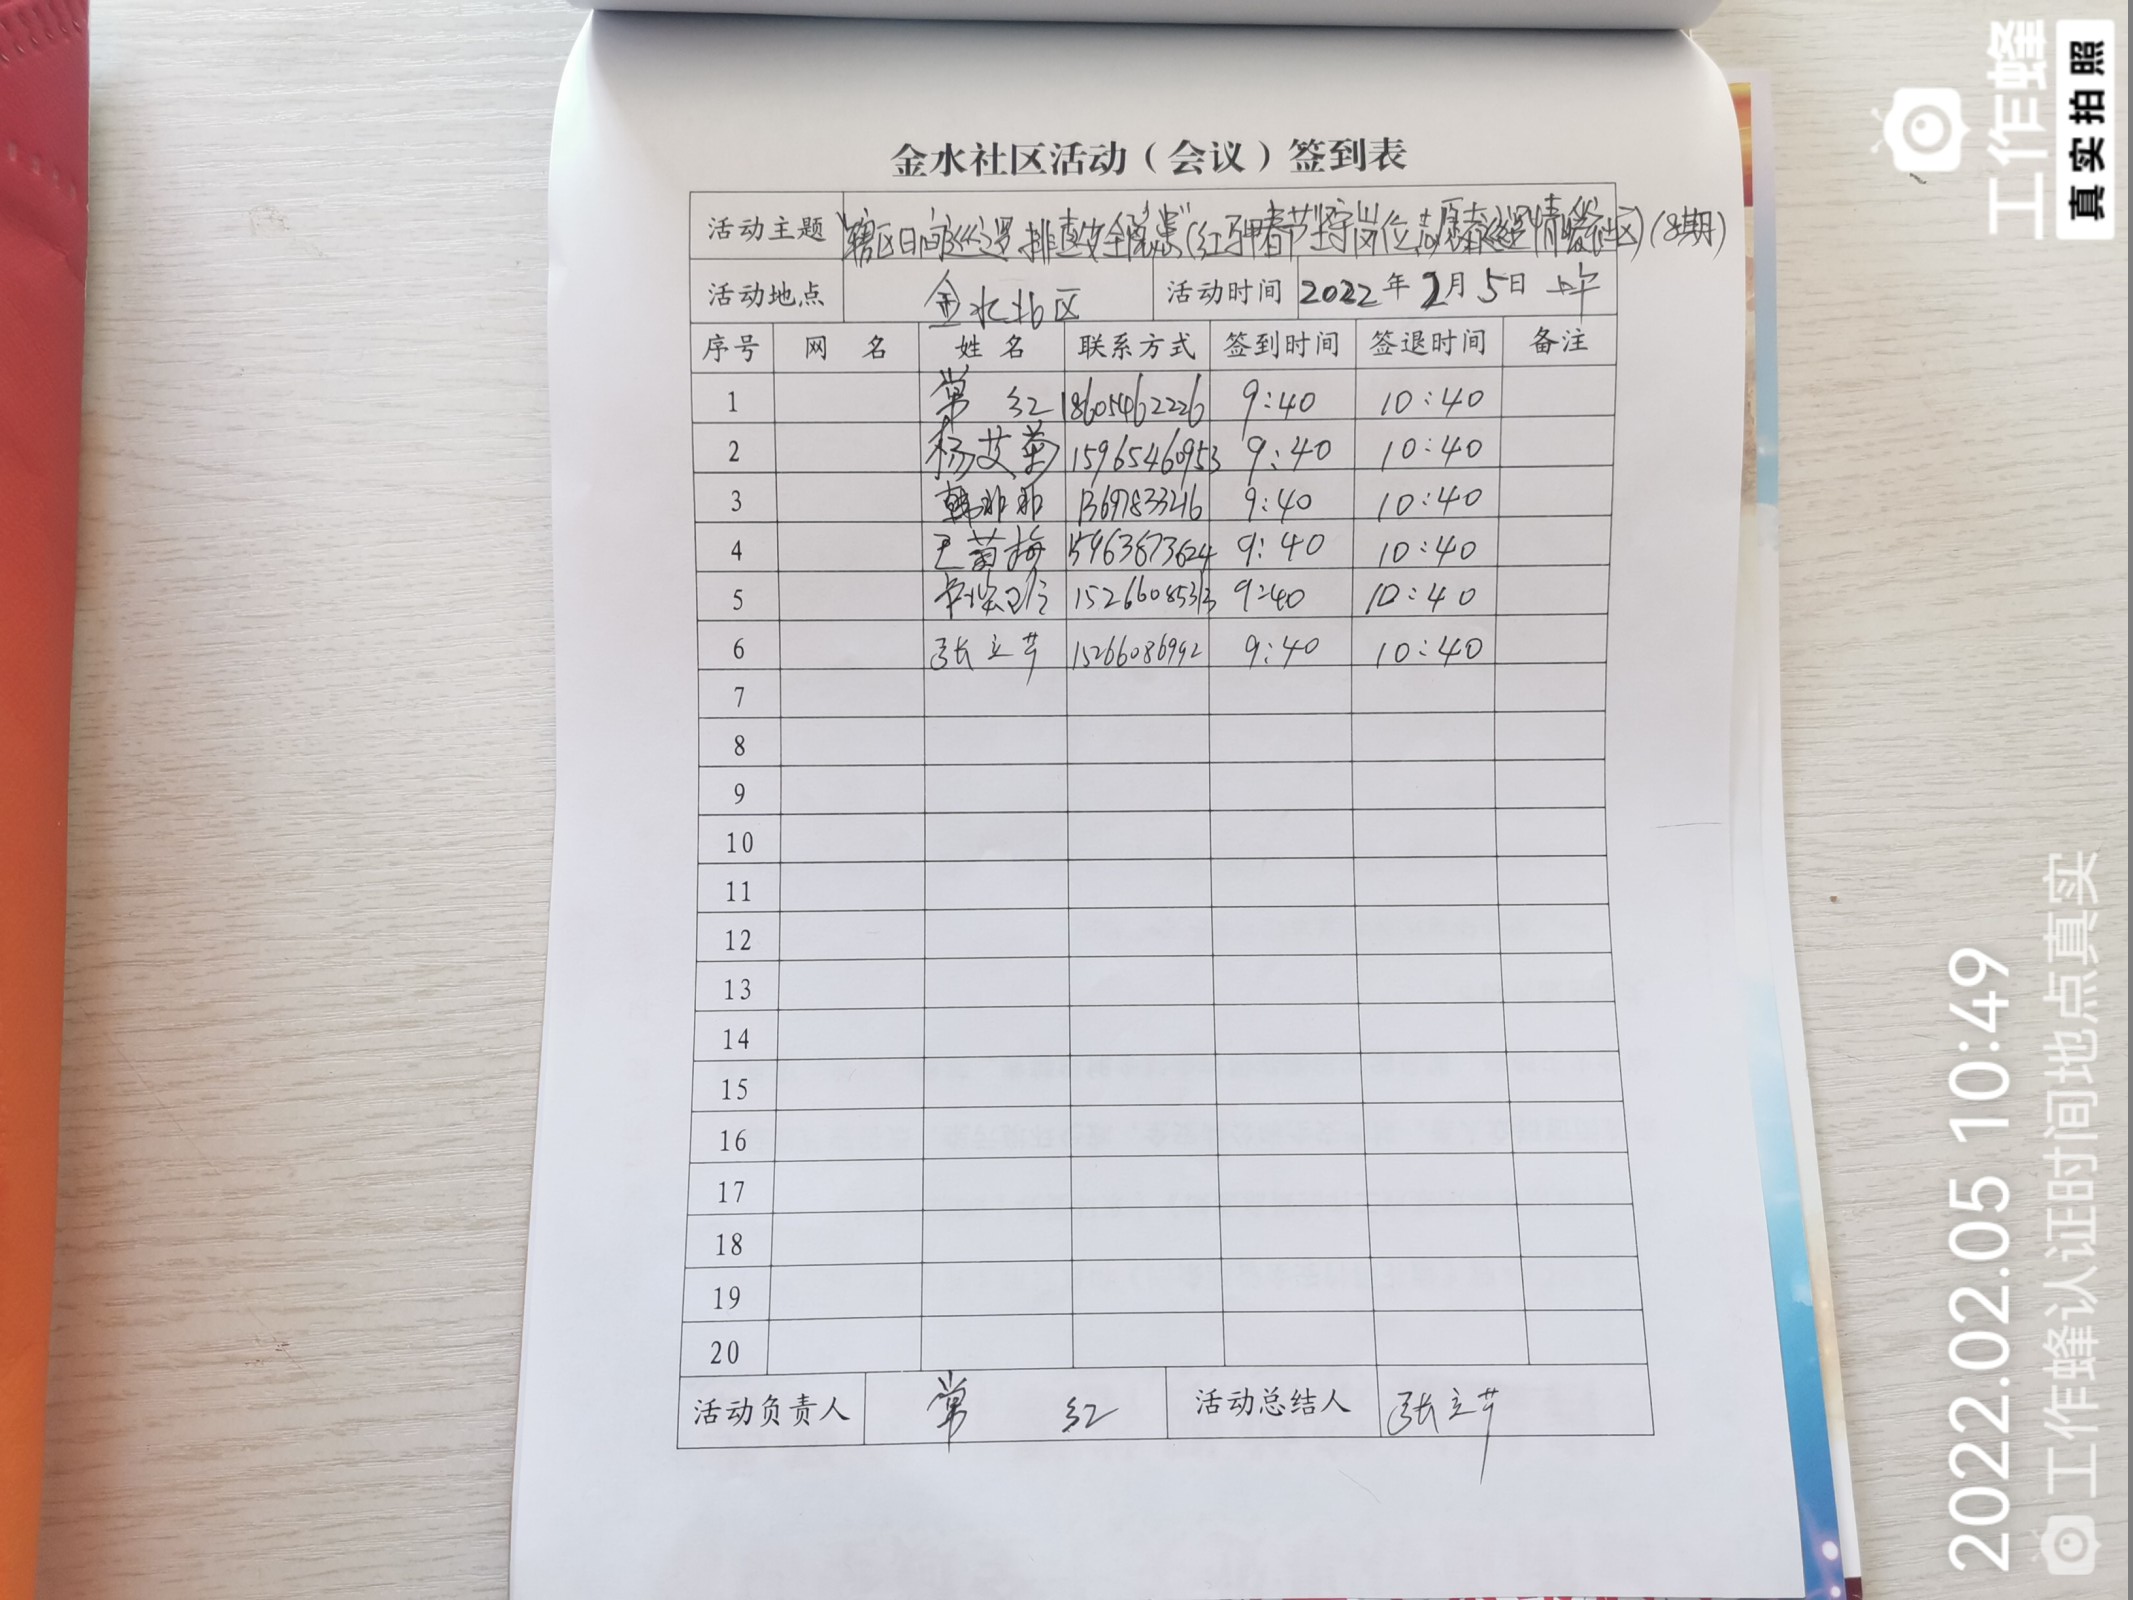 金水社区活动（会议）签到表
活动主题 "辖区日间巡逻 排查安全隐患"(红马甲春节坚守岗位 志愿巡逻情暖社区)(8期)
活动地点 金水北区 活动时间 2022年2月5日 上午
序号 网名 姓名 联系方式 签到时间 签退时间 备注
1 常红 18605462226 9:40 10:40
2 杨艾菊 15965460953 9:40 10:40
3 韩非非 9:40 10:40
4 王菊梅 15963873624 9:40 10:40
5 15266085313 9:40 10:40
6 张立芹 15266086992 9:40 10:40
7
8
9
10
11
12
13
14
15
16
17
18
19
20
活动负责人 常红 活动总结人 张立芹
工作蜂
真实拍照
2022.02.05 10:49
工作蜂认证时间地点真实